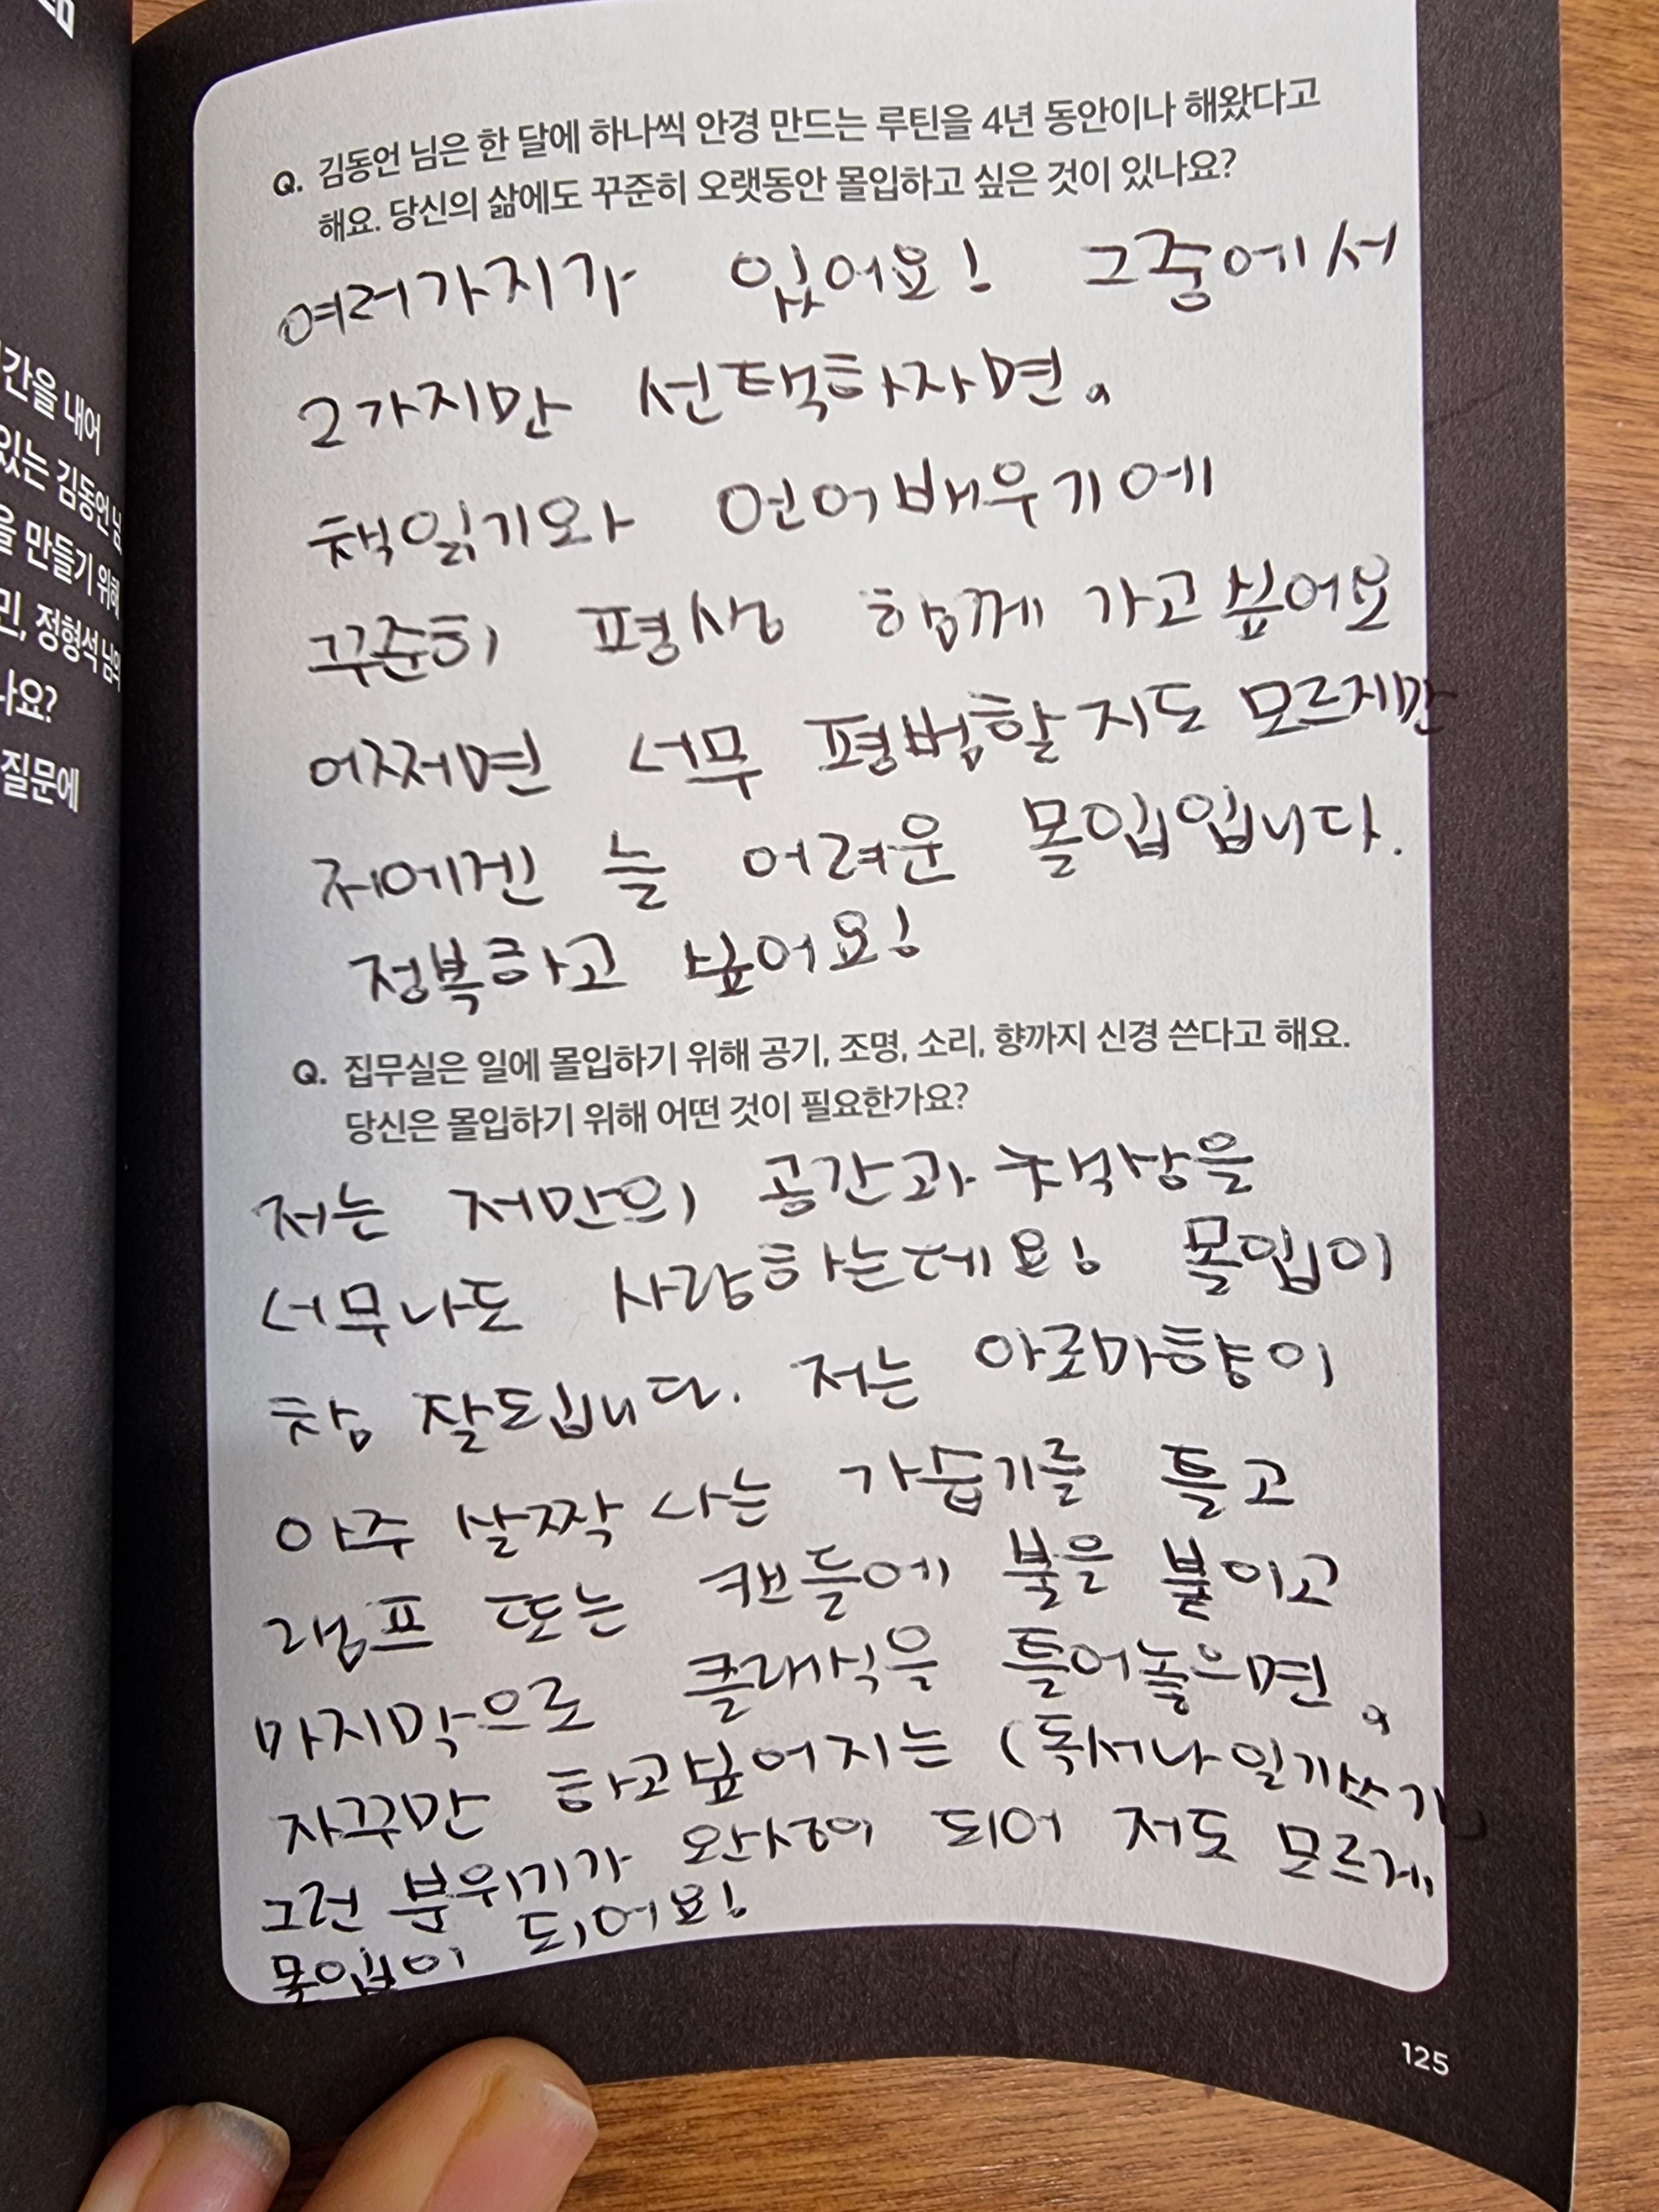 간을 내어
있는 김동언 님
을 만들기 위해
민, 정형석 님의
나요?
질문에
Q. 김동언 님은 한 달에 하나씩 안경 만드는 루틴을 4년 동안이나 해왔다고
해요. 당신의 삶에도 꾸준히 오랫동안 몰입하고 싶은 것이 있나요?
여러가지가 있어요! 그중에서
2가지만 선택하자면.
책읽기와 언어배우기에
꾸준히 평생 함께 가고싶어요
어쩌면 너무 평범할지도 모르게만
저에겐 늘 어려운 몰입입니다.
정복하고 싶어요!
Q. 집무실은 일에 몰입하기 위해 공기, 조명, 소리, 향까지 신경 쓴다고 해요.
당신은 몰입하기 위해 어떤 것이 필요한가요?
저는 저만의 공간과 책상을
너무나도 사랑하는데요! 몰입이
참 잘됩니다. 저는 아로마향이
아주 살짝 나는 가습기를 틀고
램프 또는 캔들에 불을 붙이고
마지막으로 클래식을 틀어놓으면,
자꾸만 하고싶어지는 (독서나 일기쓰기)
그런 분위기가 완성이 되어 저도 모르게
몰입이 되어요!
125